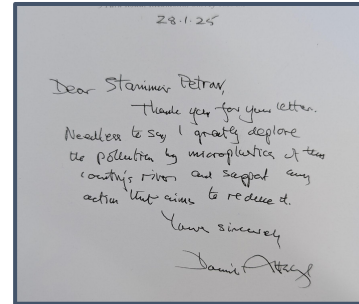 28.1.25
Dear Stanimir Petrov,
Thank you for your letter.
Needless to say, I greatly deplore
the pollution by microplastics of this
country's rivers and support any
action that aims to reduce it.
Yours sincerely
David